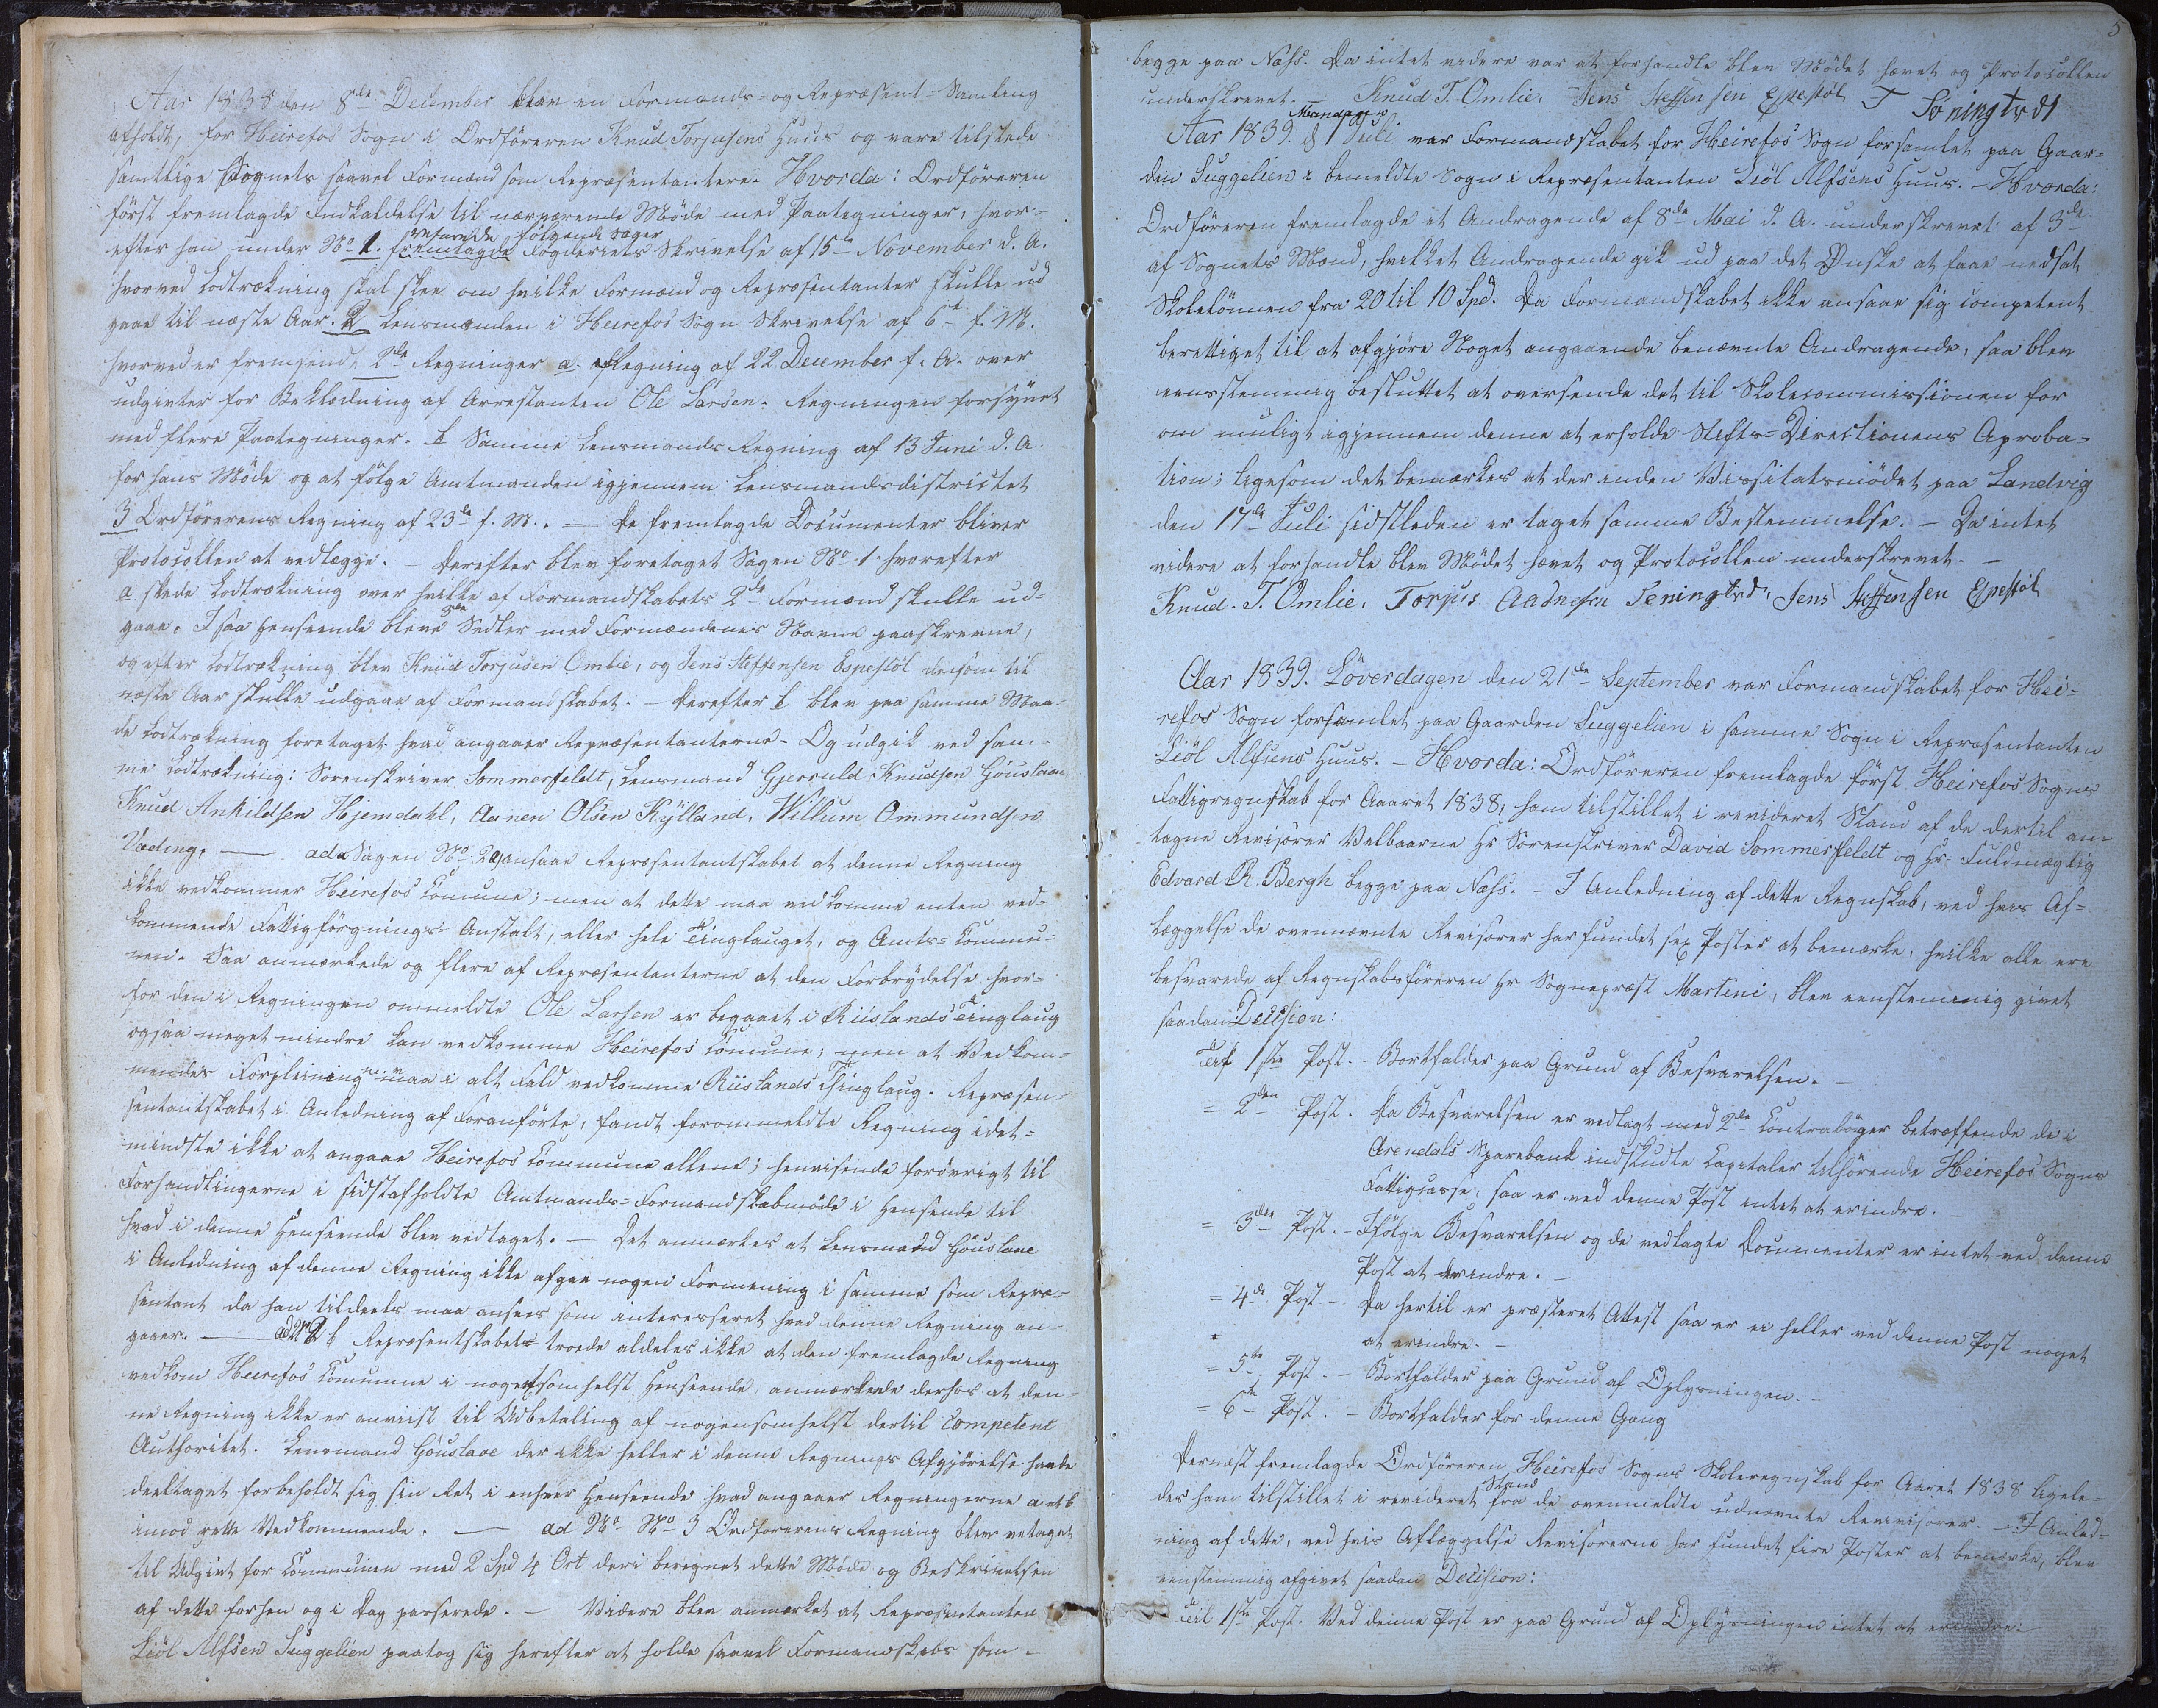 Aar 1838 den 8de December blev en Formands- og Repræsent-Samling
afholdt, for Heirefos Sogn i Ordföreren Knud Torjusens Huus og vare tilstede
samtlige Sognets saavel Formænd som Repræsentantere. Hvorda: Ordföreren
först fremlagde Indkaldelse til nærværende Möde med Paategninger, hvor-
efter han under No 1. fremlagde refererede følgende Sager Fogderiets Skrivelse af 15de November d. A.
hvorved Lodtrækning skal skee om hvilke Formænd og Repræsentanter skulle ud
gaae til næste Aar. 2 Lensmanden i Heirefos Sogn Skrivelse af 6te f. M.
hvorved er fremsendt, 2de Regninger a. Regning af 22 December f. A. over
udgivter for Beklædning af Arrestanten Ole Larsen. Regningen forsynet
med flere Paategninger. b Samme Lensmands Regning af 13 Juni d. A.
for hans Möde og at fölge Amtmanden igjennem Lensmandsdistrictet
3 Ordförerens Regning af 23de f. M. . — De fremlagde Documenter bliver
Protocollen at vedlægge. — Derefter blev foretaget Sagen No 1. hvorefter
a skede Lodtrækning over hvilke af Formandskabets 2de Formænd skulle ud-
gaae. I saa Henseende bleve Sedler med Formændenes Navne paaskrevne,
og efter Lodtrækning blev Knud Torjusen Omlie, og Jens Steffensen Espestöl de som til
næste Aar skulle udgaae af Formandskabet. — Derefter b blev paa samme Maa-
de Lodtrækning foretaget hvad angaaer Repræsentanterne. Og udgik ved sam-
me Lodtrækning: Sorenskriver Sommerfeldt, Lensmand Gjeruld Knudsen Göuslaae
Knud Ankildsen Hjemdahl, Aanen Olsen Kylland, Willum Ommundsen
Væding. — ad Sagen No 2 a, ansaae Repræsentantskabet at denne Regning
ikke vedkommer Heirefos Comune; men at dette maa vedkomme enten ved-
kommende Fattigforsgnings Anstalt, eller hele Tinglauget, og Amts-Commu-
nen. Saa anmærkede og flere af Repræsentanterne at den Forbrydelse hvor-
for den i Regningen ommeldte Ole Larsen er begaaet i Riislands Tinglaug
og saa meget mindre kan vedkomme Heirefos Comune; men at Vedkom-
mendes Forpleining maa i alt Fald vedkomme Riislands Thinglaug. Repræsen-
sentantskabet i Anledning af Foranförte, fandt forommeldte Regning idet-
mindste ikke at angaae Heirefos Commune allene; henvisende forövrigt til
Forhandlingerne i sidstafholdte Amtmands-Formandskabmöde i Hensende til
hvad i denne Henseende blev vedtaget. — Det anmærkes at Lensmand Göuslaae
i Anledning af denne Regning ikke afgav nogen Formening i samme som Repræ-
sentant da han tildeels maa ansees som interesseret hvad denne Regning an-
gaaer. — ad No 2 b Repræsentskabet troede aldeles ikke at den fremlagde Regning
vedkom Heirefos Comunne i nogetsomhelst Henseende, anmærkede derhos at den-
ne Regning ikke er anviist til Udbetaling af nogensomhelst dertil competent
Authoritet. Lensmand Göuslaae der ikke heller i denne Regnings Afgjörelse havde
deeltaget forbeholdt sig sin Ret i enhver Henseende hvad angaaer Regningerne a et b
imod rette Vedkommende. — ad No No 3 Ordförerens Regning blev vetaget
til Udgivt for Communen med 2 Spd 4 Ort deri beregnet dette Möde og Beskrivelsen
af dette forhen og i Dag passerede. — Videre blev anmærket at Repræsentanten
Liöl Alfsen Suggelien paatog sig herefter at holde saavel Formandskabs som-
5
begge paa Næss. Da intet videre var at forhandle blev Mödet hævet og Protocollen
underskrevet. — Knud T. Omlie. Jens Steffensen Espestöl T Töningtvedt
Aar 1839. Mandag d 1 Juli var Formandskabet for Heirefos Sogn forsamlet paa Gaar-
den Suggelien i bemeldte Sogn i Repræsentanten Liöl Alfsens Huus. — Hvorda:
Ordföreren fremlagde et Andragende af 8de Mai d. A. underskrevet af 3de
af Sognets Mænd, hvilket Andragende gik ud paa det Ønske at faae nedsat
Skolelönnen fra 20 til 10 Spd. Da Formandskabet ikke ansaae sig competent
berettiget til at afgjöre Noget angaaende benævnte Andragende, saa blev
eensstemmig besluttet at oversende det til Skolecommissionen for
om muligt igjennem denne at erholde Stifts-Directionens Aproba-
tion; ligesom det bemærkes at der inden Vissitatsmödet paa Landvig
den 17de Juli sidstleden er taget samme Bestemmelse. — Da intet
videre at forhandle blev Mödet hævet og Protocollen underskrevet. —
Knud. T. Omlie. Torjus Aadnesen Teningtvd, Jens Steffensen Espestöl
Aar 1839. Löverdagen den 21de September var Formandskabet for Hei-
refos Sogn forsamlet paa Gaarden Suggelien i samme Sogn i Repræsentanten
Liöl Alfsens Huus. — Hvorda: Ordföreren fremlagde först Heirefos Sogns
Fattigregnskab for Aaret 1838, ham tilstillet i revideret Stand af de dertil an-
tagne Revisorer Velbaarne Hr Sorenskriver David Sommerfeldt og Hr. Fuldmægtig
Edvard R. Bergh begge paa Næss. — I Anledning af dette Regnskab, ved hvis Af-
læggelse de ovennævnte Revisorer har fundet sex Poster at bemærke, hvilke alle ere
besvarede af Regnskabsföreren Hr Sognepræst Martini, blev eenstemmig givet
saadan Decision:
Til 1ste Post. — Bortfalder paa Grund af Besvarelsen. —
= 2den Post. Da Besvarelsen er vedlagt med 2de Contraböger betræffende de i
Arendals Sparebank indskudte Capitaler tilhörende Heirefos Sogns
Fattigcasse, saa er ved denne Post intet at erindre. —
= 3die Post. — Ifölge Besvarelsen og de vedlagte Documenter er intet ved denne
Post at erindre. —
= 4de Post — Da hertil er præsteret Attest saa er ei heller ved denne Post noget
at erindre. —
= 5te Post. — Bortfalder paa Grund af Oplysningen. —
= 6te Post. — Bortfalder for denne Gang
Dernæst fremlagde Ordföreren Heirefos Sogns Skoleregnskab for Aaret 1838 ligele-
des ham tilstillet i revideret Stand fra de ovenmeldte udnævnte Revisorer. — I Anled-
ning af dette, ved hvis Aflæggelse Revisorerne har fundet fire Poster at bemærke, blev
eenstemmig afgivet saadan Decision:
Til 1ste Post. Ved denne Post er paa Grund af Oplysningen intet at erindre.